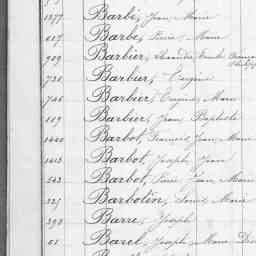 1277 Barbé, Jean Marie
617 Barbe, Pierre Marie
909 Barbier, Alexandre
730 Barbier, Eugène
746 Barbier, Eugène, Marie
119 Barbier, Jean Baptiste
1440 Barbot, François Jean Marie
1413 Barbot, Joseph Jean
543 Barbot, Pierre Jean Marie
325 Barbotin, Louis Marie
393 Barre, Joseph
61 Barel, Joseph Marie